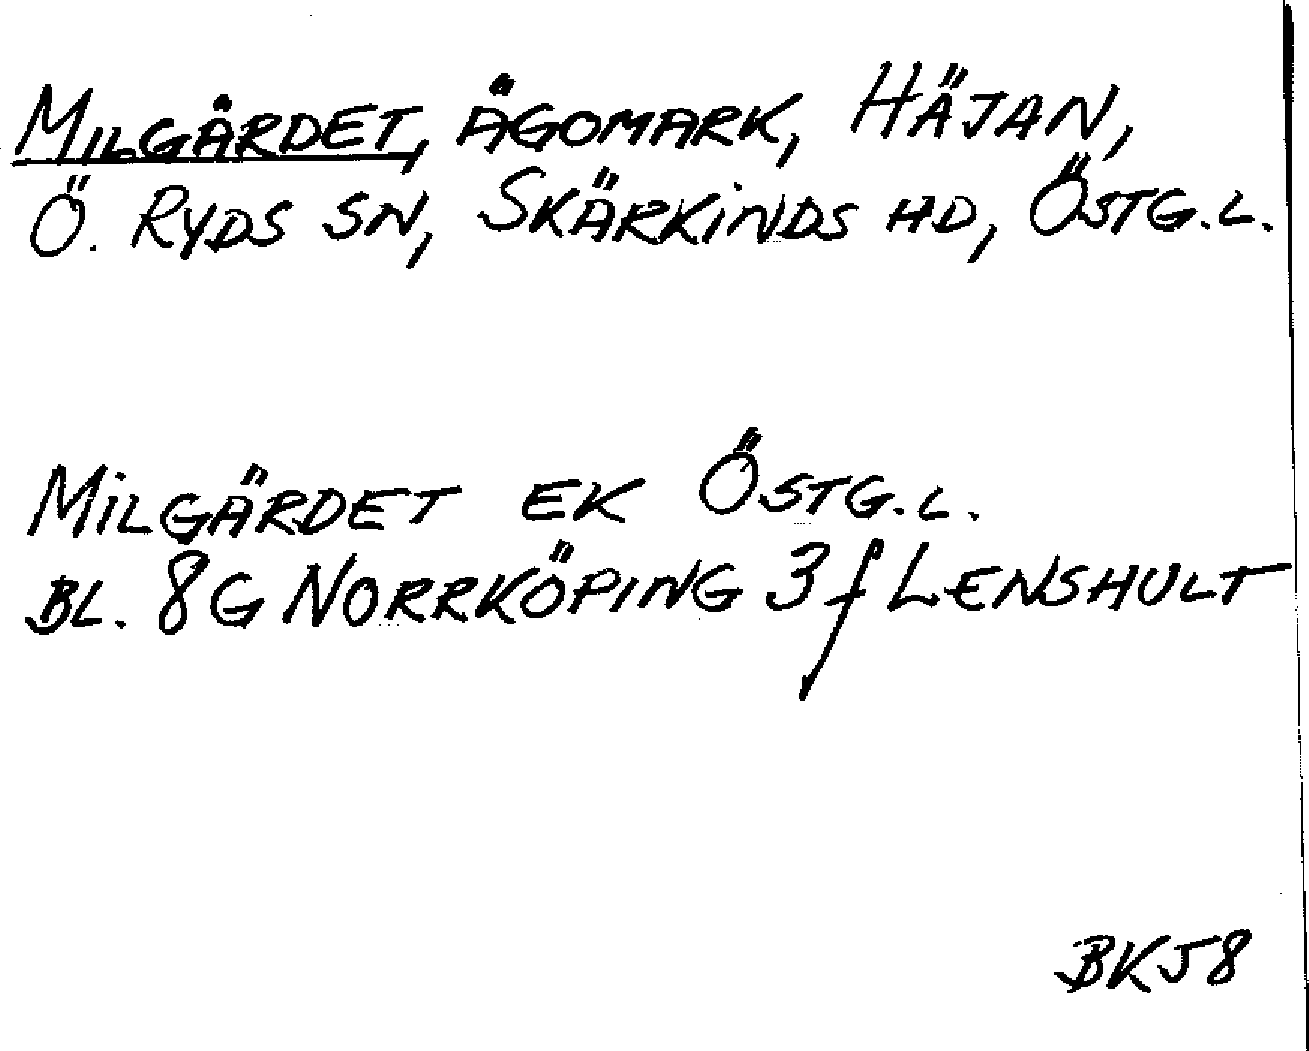 MILGÄRDET, ÄGOMARK, HÄJAN,
Ö. RYDS SN, SKÄRKINDS HD, ÖSTG.L.
MILGÄRDET EK ÖSTG.L.
BL. 8G NORRKÖPING 3f LENSHULT
BKJ8